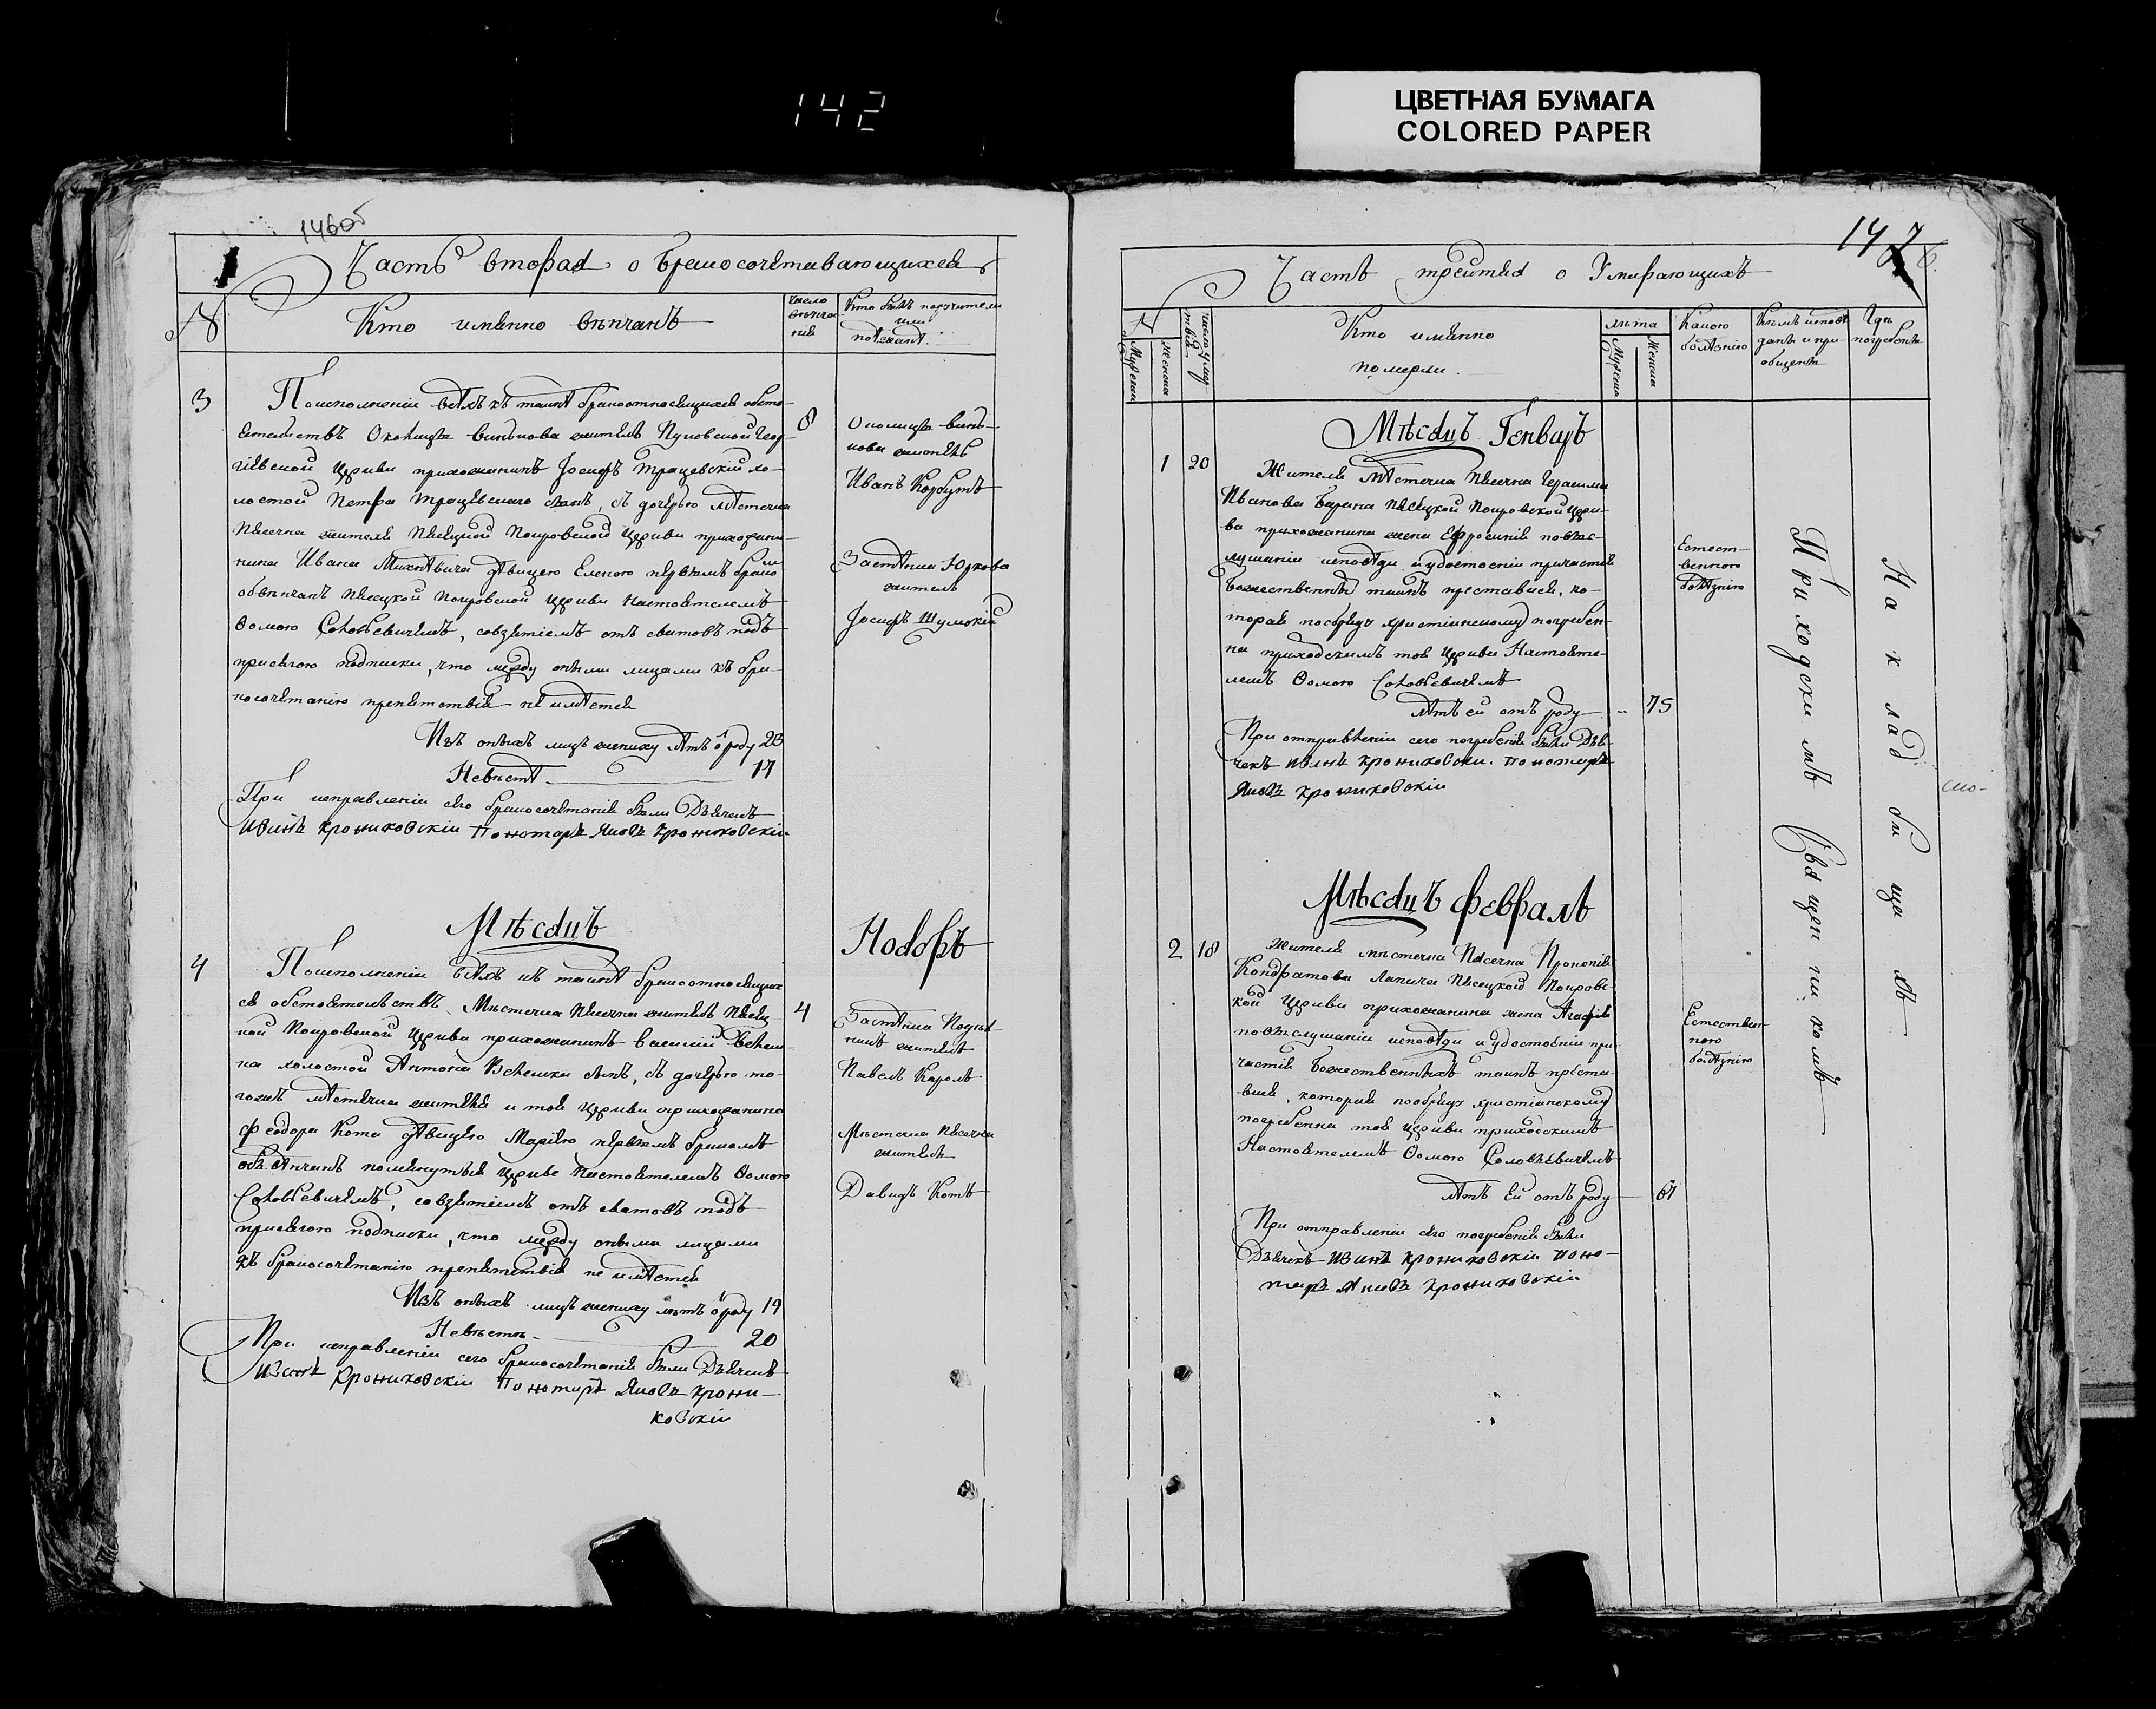 142
ЦВЕТНАЯ БУМАГА
COLORED PAPER
146об
Часть вторая о Бракосочетавающихся
№
Кто именно вѣнчанъ
число вѣнча-
нія
Кто былъ поручители
или
поѣзжане
3
По исполненіи всѣхъ къ таинѣ бракоотносящихся обсто-
ятельствъ Околицы житель Пуковской Геор-
гіевской Церкви прихожанинъ Іосифъ Трацевскій хо-
лостой Петра Трацевскаго сынъ, съ дочерью мѣстечка
Песечна жителя Песецкой Покровской Церкви прихожа-
нина Ивана Михнѣвича дѣвицею Еленою первымъ бракомъ
обвѣнчанъ Песецкой Покровской Церкви Настоятелемъ
Ѳомою Соловьевичемъ, совзятіемъ отъ сватовъ подъ
присягою подписки, что между оными лицами къ бра-
косочетанію препятствія не имѣется
Изъ оныхъ лицъ жениху лѣтъ о роду 23
Невѣстѣ 17
При исправленіи сего бракосочетанія были Дьячекъ
Крониковскіи Пономарь Яковъ Крониковскіи
8
Околицы
жители
Иванъ Корбутъ
Застѣнка Юркова
житель
Іосифъ Шумскій
Мѣсяцъ
Ноябрь
4
По исполненіи всѣхъ къ таинѣ бракоотносящих
ся обстоятельствъ Мѣстечка Песечна житель Песец
кой Покровской Церкви прихожанинъ Василій
на холостой Антона сынъ, съ дочерью то-
гожъ мѣстечка жителя и той Церкви прихожанина
Феодора Кота дѣвицею Маріею первымъ бракомъ
обвѣнчанъ помянутыя Церкве Настоятелемъ Ѳомою
Соловьевичемъ, совзятіемъ отъ сватовъ подъ
присягою подписки, что между оными лицами
къ бракосочетанію препятствія не имѣется
Изъ оныхъ лицъ жениху лѣтъ о роду 19
Невѣстѣ 20
При исправленіи сего бракосочетанія были Дьячекъ
Крониковскіи Пономарь Яковъ Крони-
ковскіи
4
Застѣнка
житель
Павелъ Король
Мѣстечка Песечна
житель
Давидъ Котъ
147
Часть третья о Умирающихъ
№
Мужеска
Женска
число умер
твія
Кто именно
померли
лѣта
Мужеска
Женска
Какою
болѣзнію
Кѣмъ исповѣ
данъ и при-
общенъ
Гдѣ
погребенъ
Мѣсяцъ Генварь
1 20
Жителя мѣстечка Песечна Герасима
Иванова Барана Песецкой Покровской Церк-
ви прихожанина жена Ефросинія по выс-
лушаніи исповѣди и удостоеніи причастія
Божественныхъ таинъ преставися, ко-
торая по обряду христіанскому погребен-
на приходскимъ той Церкви Настояте-
лемъ Ѳомою Соловьевичемъ
Лѣтъ ей отъ роду 75
При отправленіи сего погребенія были Дья-
чекъ Крониковскіи. Пономарь
Яковъ Крониковскіи
Естест-
венною
болѣзнію
Приходскимъ Священникомъ
На кладбищѣ
Мѣсяцъ Февраль
2 18
Жителя мѣстечка Песечна Прокопія
Кондратова Лапича Песецкой Покровс-
кой Церкви прихожанина жена Агафія
по выслушаніи исповѣди и удостоеніи при-
частія Божественныхъ таинъ преста-
вися, которая по обряду христіанскому
погребенна той Церкви приходскимъ
Настоятелемъ Ѳомою Соловьевичемъ
Лѣтъ Ей отъ роду 67
При отправленіи сего погребенія были
Дьячекъ Крониковскіи Поно-
марь Яковъ Крониковскіи
Естествен-
ною
болѣзнію